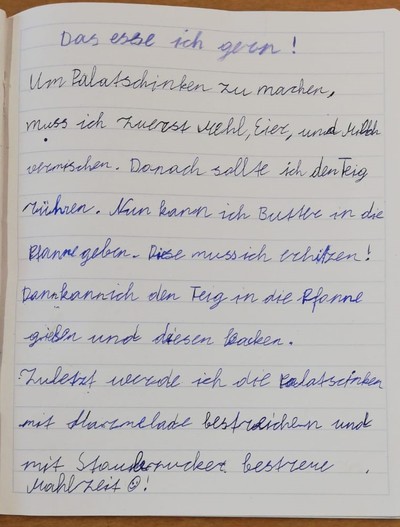 Das esse ich gern!
Um Palatschinken zu machen,
muss ich zuerst Mehl, Eier, und Milch
vermischen. Danach sollte ich den Teig
rühren. Nun kann ich Butter in die
Pfanne geben. Diese muss ich erhitzen!
Dann kann ich den Teig in die Pfanne
gießen und diesen backen.
Zuletzt werde ich die Palatschinken
mit Marmelade bestreichen und
mit bestreue.
Mahlzeit ☺!